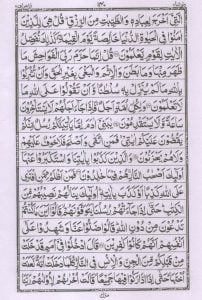 ١٤٠
الَّتِيْٓ اَخْرَجَ لِعِبَادِهٖ وَالطَّيِّبٰتِ مِنَ الرِّزْقِ ؕ قُلْ هِيَ لِلَّذِيْنَ
اٰمَنُوْا فِي الْحَيٰوةِ الدُّنْيَا خَالِصَةً يَّوْمَ الْقِيٰمَةِ ؕ كَذٰلِكَ نُفَصِّلُ
الْاٰيٰتِ لِقَوْمٍ يَّعْلَمُوْنَ ۝ قُلْ اِنَّمَا حَرَّمَ رَبِّيَ الْفَوَاحِشَ مَا
ظَهَرَ مِنْهَا وَمَا بَطَنَ وَالْاِثْمَ وَالْبَغْيَ بِغَيْرِ الْحَقِّ وَاَنْ تُشْرِكُوْا
بِاللّٰهِ مَا لَمْ يُنَزِّلْ بِهٖ سُلْطٰنًا وَّاَنْ تَقُوْلُوْا عَلَى اللّٰهِ مَا
لَا تَعْلَمُوْنَ ۝ وَلِكُلِّ اُمَّةٍ اَجَلٌ ۚ فَاِذَا جَآءَ اَجَلُهُمْ لَا يَسْتَاْخِرُوْنَ
سَاعَةً وَّلَا يَسْتَقْدِمُوْنَ ۝ يٰبَنِيْٓ اٰدَمَ اِمَّا يَاْتِيَنَّكُمْ رُسُلٌ مِّنْكُمْ
يَقُصُّوْنَ عَلَيْكُمْ اٰيٰتِيْ ۙ فَمَنِ اتَّقٰى وَاَصْلَحَ فَلَا خَوْفٌ عَلَيْهِمْ
وَلَا هُمْ يَحْزَنُوْنَ ۝ وَالَّذِيْنَ كَذَّبُوْا بِاٰيٰتِنَا وَاسْتَكْبَرُوْا عَنْهَآ
اُولٰٓئِكَ اَصْحٰبُ النَّارِ ۚ هُمْ فِيْهَا خٰلِدُوْنَ ۝ فَمَنْ اَظْلَمُ مِمَّنِ افْتَرٰى
عَلَى اللّٰهِ كَذِبًا اَوْ كَذَّبَ بِاٰيٰتِهٖ ؕ اُولٰٓئِكَ يَنَالُهُمْ نَصِيْبُهُمْ مِّنَ
الْكِتٰبِ ؕ حَتّٰٓى اِذَا جَآءَتْهُمْ رُسُلُنَا يَتَوَفَّوْنَهُمْ ۙ قَالُوْٓا اَيْنَ مَا كُنْتُمْ
تَدْعُوْنَ مِنْ دُوْنِ اللّٰهِ ؕ قَالُوْا ضَلُّوْا عَنَّا وَشَهِدُوْا عَلٰٓى
اَنْفُسِهِمْ اَنَّهُمْ كَانُوْا كٰفِرِيْنَ ۝ قَالَ ادْخُلُوْا فِيْٓ اُمَمٍ قَدْ خَلَتْ
مِنْ قَبْلِكُمْ مِّنَ الْجِنِّ وَالْاِنْسِ فِي النَّارِ ؕ كُلَّمَا دَخَلَتْ اُمَّةٌ لَّعَنَتْ
اُخْتَهَا ؕ حَتّٰٓى اِذَا ادَّارَكُوْا فِيْهَا جَمِيْعًا ۙ قَالَتْ اُخْرٰىهُمْ لِاُوْلٰىهُمْ رَبَّنَا